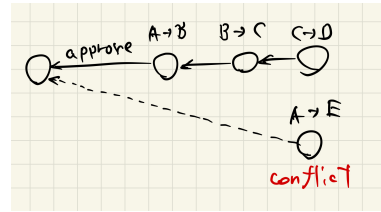 approve A→B B→C C→D
A→E
conflict